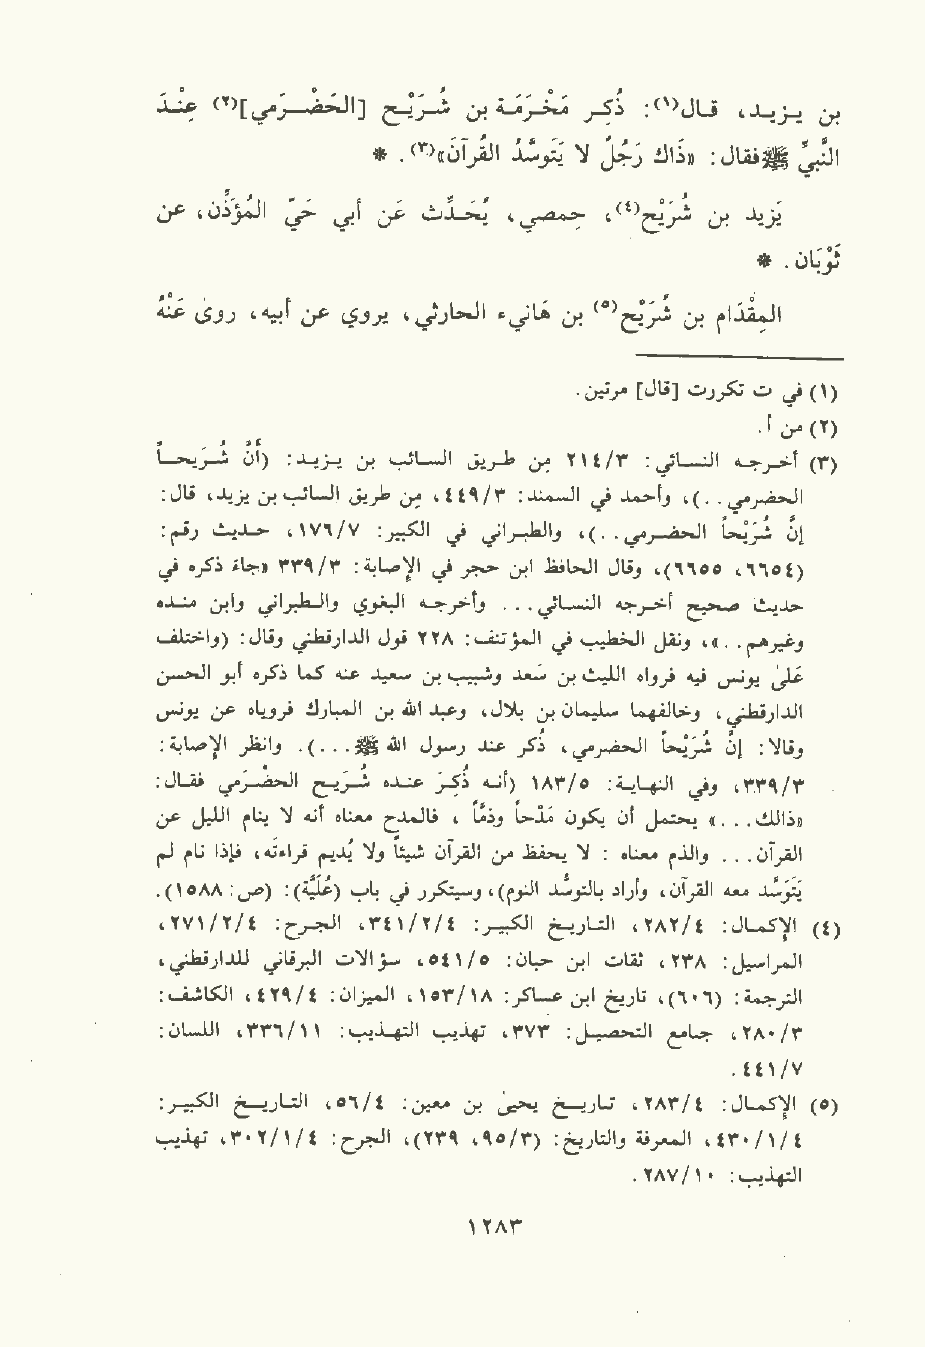 بن يـزيـد، قـال(١): ذِكـر مَخْرَمَـة بن شُـرَيْـح [الحَضْـرَمي](٢) عِنْـدَ
النَّبيِّ ﷺ فقال: «ذاكَ رَجُلٌ لا يَتَوسَّدُ القُرآنَ»(٣). *
يَزيد بن شُرَيْح(٤)، حِمصي، يُحَـدِّث عَن أبي حَيّ المُؤَذِّن، عن
ثَوْبَان. *
المِقْدَام بن شُرَيْح(٥) بن هَانيء الحارثي، يروي عن أبيه، روىٰ عَنْهُ
(١) في ت تكررت [قال] مرتين.
(٢) من أ.
(٣) أخـرجـه النسـائي: ٢١٤/٣ مِن طـريق السـائب بن يـزيـد: (أنَّ شُـرَيحـاً
الحضرمي..)، وأحمد في المسند: ٤٤٩/٣، مِن طريق السائب بن يزيد، قال:
إنَّ شُرَيْحاً الحضـرمي..)، والطبـراني في الكبيـر: ١٧٦/٧، حـديث رقم:
(٦٦٥٤، ٦٦٥٥)، وقال الحافظ ابن حجر في الإصابة: ٣٣٩/٣ «جاء ذكره في
حديث صحيح أخـرجه النسـائي... وأخـرجـه البغوي والـطبراني وابن منـده
وغيرهم..»، ونقل الخطيب في المؤتنف: ٢٢٨ قول الدارقطني وقال: (واختلف
علىٰ يونس فيه فرواه الليث بن سَعد وشبيب بن سعيد عنه كما ذكره أبو الحسن
الدارقطني، وخالفهما سليمان بن بلال، وعبد الله بن المبارك فروياه عن يونس
وقالا: إنَّ شُرَيْحاً الحضرمي، ذُكر عند رسول الله ﷺ...). وانظر الإصابة:
٣٣٩/٣، وفي النهـايـة: ١٨٣/٥ (أنـه ذُكِـرَ عنـده شُـرَيـح الحضْـرَمي فقـال:
«ذالك...» يحتمل أن يكون مَدحاً وذمّاً، فالمدح معناه أنه لا ينام الليل عن
القرآن... والذم معناه: لا يحفظ من القرآن شيئاً ولا يُدِيم قراءتَه، فإذا نام لم
يَتَوسَّد معه القرآن، وأراد بالتوسُّد النوم)، وسيتكرر في باب (عُلَيَّة): (ص: ١٥٨٨).
(٤) الإكمـال: ٢٨٢/٤، التـاريـخ الكبيـر: ٣٤١/٢/٤، الجـرح: ٢٧١/٢/٤،
المراسيل: ٢٣٨، ثقات ابن حبان: ٥٤١/٥، سؤالات البرقاني للدارقطني،
الترجمة: (٦٠٦)، تاريخ ابن عسـاكر: ١٥٣/١٨، الميزان: ٤٢٩/٤، الكاشف:
٢٨٠/٣، جـامع التحصيـل: ٣٧٣، تهذيب التهـذيب: ٣٣٦/١١، اللسان:
٤٤١/٧.
(٥) الإكمـال: ٢٨٣/٤، تـاريـخ يحيىٰ بن معين: ٥٦/٤، التـاريـخ الكبيـر:
٤٣٠/١/٤، المعرفة والتاريخ: (٩٥/٣، ٢٣٩)، الجرح: ٣٠٢/١/٤، تهذيب
التهذيب: ٢٨٧/١٠.
١٢٨٣